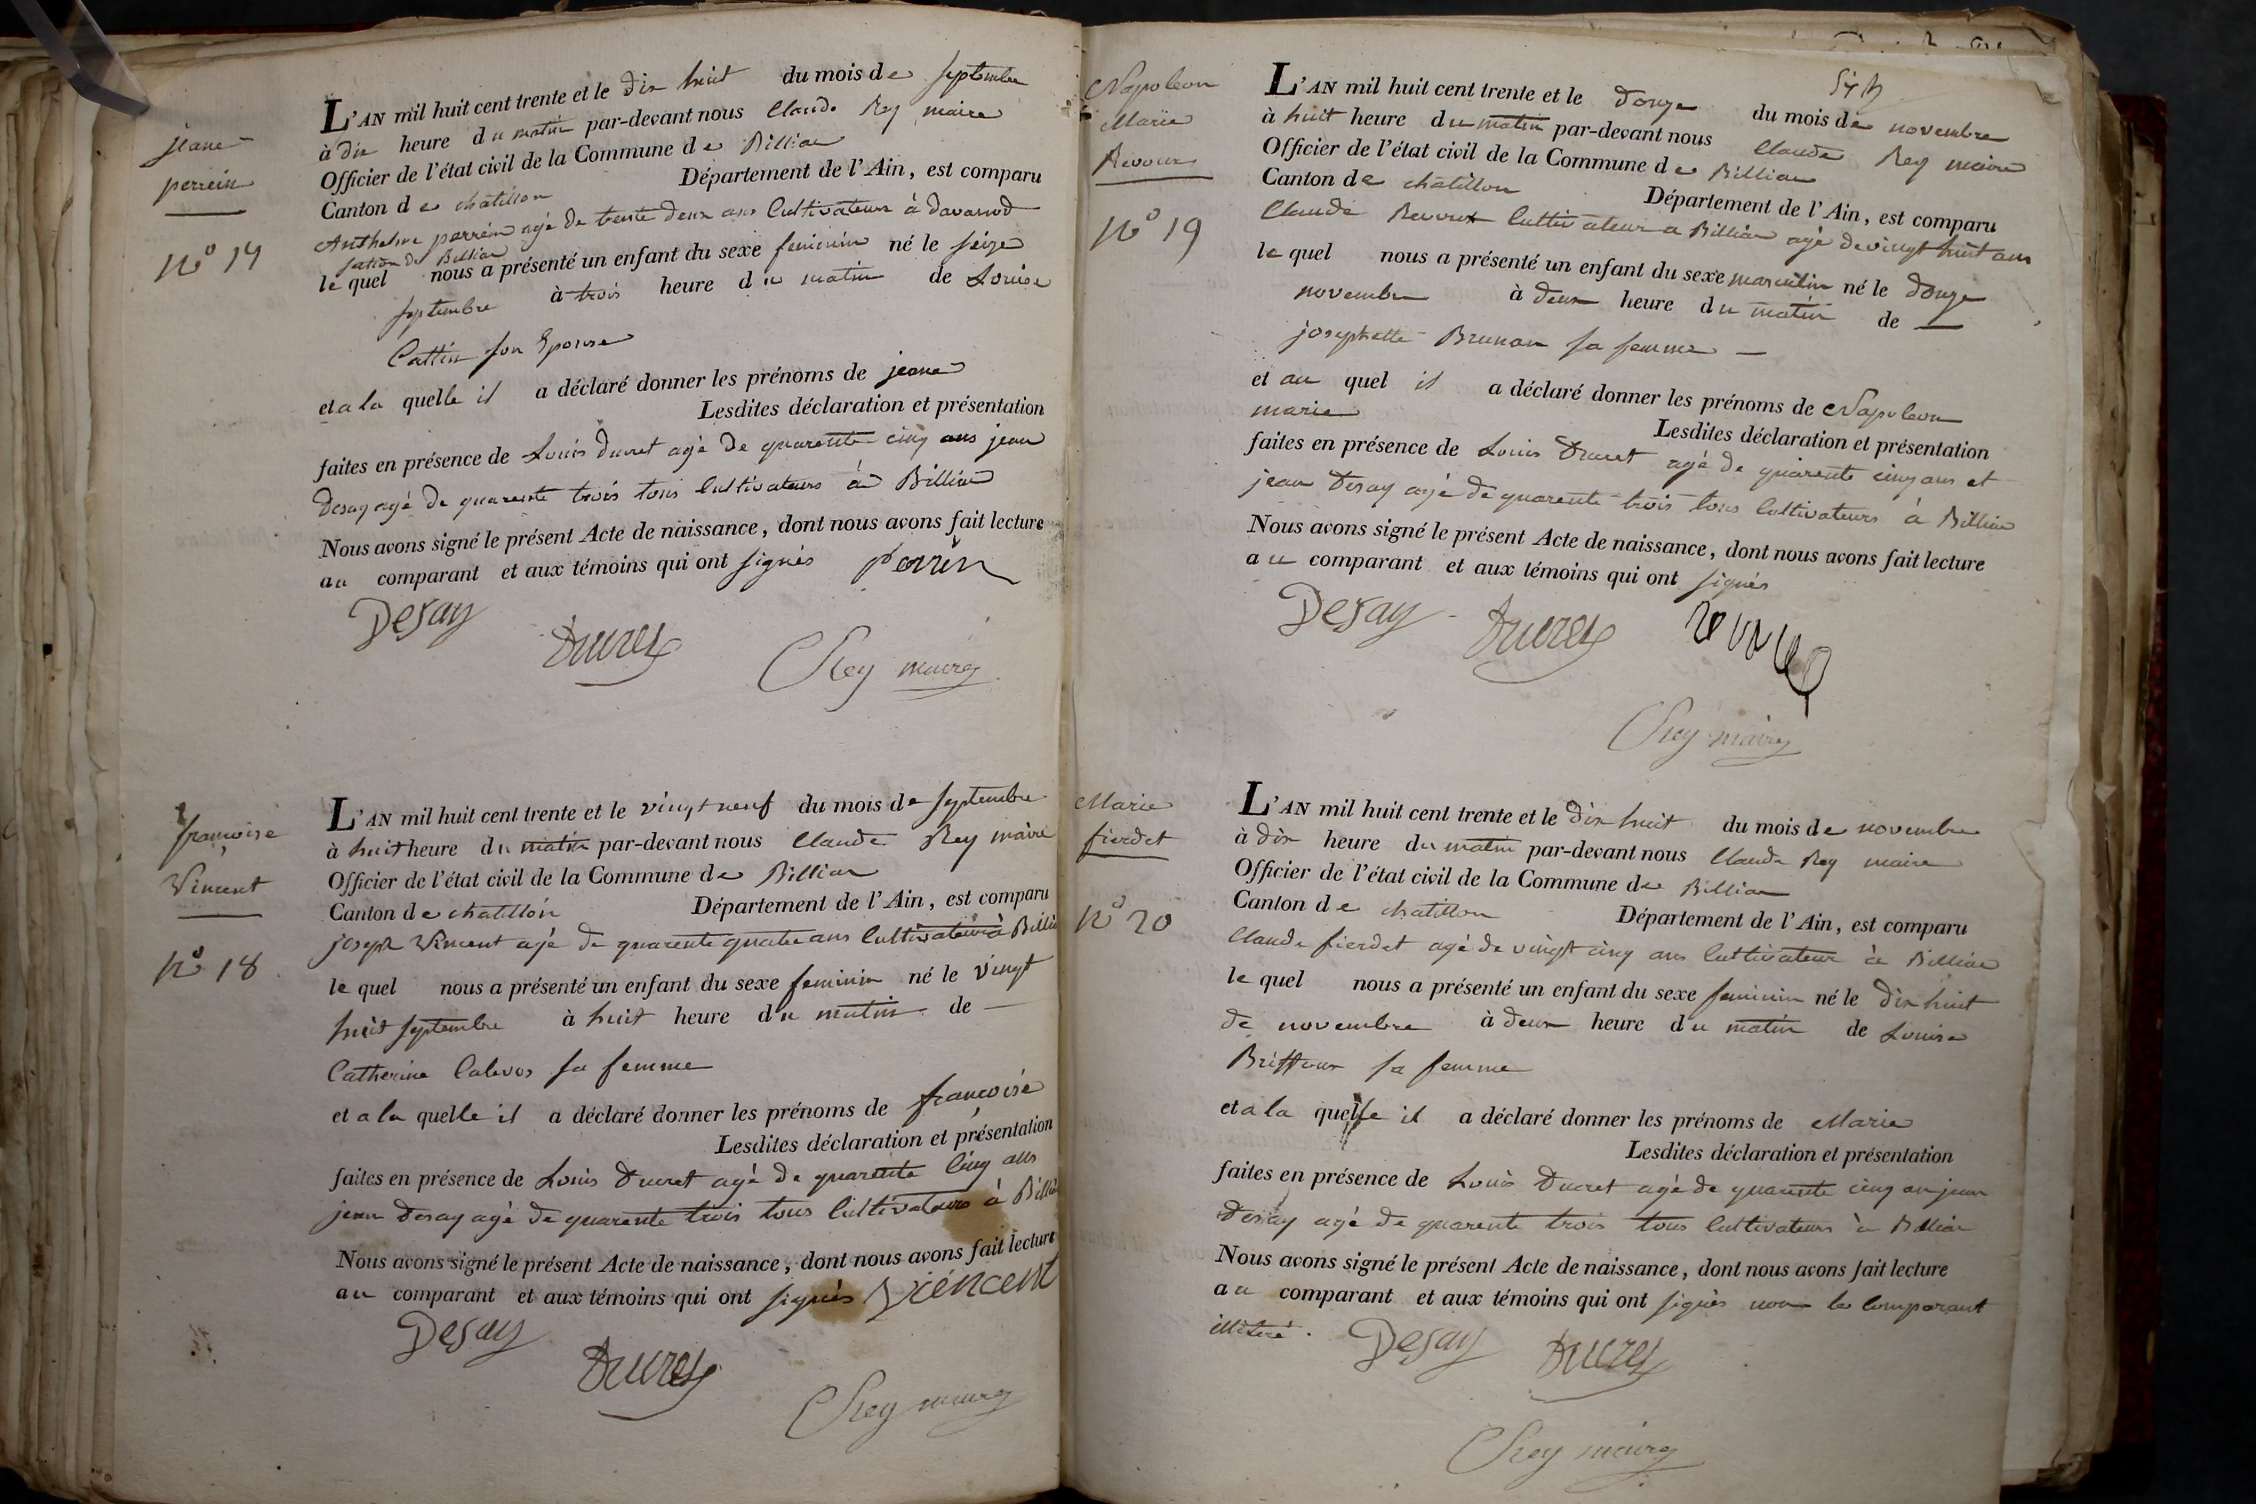 jeane
perrein
N° 17
L'AN mil huit cent trente et le dix huit du mois de septembre
à dix heure du matin par-devant nous Claude Rey maire
Officier de l'état civil de la Commune de Billiat
Canton de chatillon Département de l'Ain, est comparu
Anthelme perrein agé de trente deux ans Cultivateur à davanod
section de Billiat
le quel nous a présenté un enfant du sexe feminin né le seize
septembre à trois heure du matin de Louise
Cattin son Epouse
et a la quelle il a déclaré donner les prénoms de jeane
Lesdites déclaration et présentation
faites en présence de Louis Ducret agé de quarente cinq ans jean
Desay agé de quarente trois tous Cultivateurs à Billiat
Nous avons signé le présent Acte de naissance, dont nous avons fait lecture
au comparant et aux témoins qui ont signés perrin
Desay
Ducret
Rey maire
francoise
Vincent
N° 18
L'AN mil huit cent trente et le vingt neuf du mois de septembre
à huit heure du matin par-devant nous Claude Rey maire
Officier de l'état civil de la Commune de Billiat
Canton de chatillon Département de l'Ain, est comparu
joseph Vincent agé de quarente quatre ans Cultivateur à Billiat
le quel nous a présenté un enfant du sexe feminin né le vingt
huit septembre à huit heure du matin de
Catherine sa femme
et a la quelle il a déclaré donner les prénoms de francoise
Lesdites déclaration et présentation
faites en présence de Louis Ducret agé de quarente Cinq ans
jean Desay agé de quarente trois tous Cultivateurs à Billiat
Nous avons signé le présent Acte de naissance, dont nous avons fait lecture
au comparant et aux témoins qui ont signés Viencent
Desay
Ducret
Rey maire
Napoleon
Marie
Revoux
N° 19
L'AN mil huit cent trente et le douze du mois de novembre
à huit heure du matin par-devant nous Claude Rey maire
Officier de l'état civil de la Commune de Billiat
Canton de chatillon Département de l'Ain, est comparu
Claude Revoux Cultivateur a Billiat agé de vingt huit ans
le quel nous a présenté un enfant du sexe masculin né le douze
novembre à deux heure du matin de
josephette Brunan sa femme
et au quel il a déclaré donner les prénoms de Napoleon
marie
Lesdites déclaration et présentation
faites en présence de Louis Ducret agé de quarente cinq ans et
jean Desay agé de quarente trois tous Cultivateurs à Billiat
Nous avons signé le présent Acte de naissance, dont nous avons fait lecture
au comparant et aux témoins qui ont signés
Desay
Ducret
Rey maire
Marie
fierdet
N° 20
L'AN mil huit cent trente et le dix huit du mois de novembre
à dix heure du matin par-devant nous Claude Rey maire
Officier de l'état civil de la Commune de Billiat
Canton de chatillon Département de l'Ain, est comparu
Claude fierdet agé de vingt cinq ans Cultivateur à Billiat
le quel nous a présenté un enfant du sexe feminin né le dix huit
de novembre à deux heure du matin de Louise
sa femme
et a la quelle il a déclaré donner les prénoms de Marie
Lesdites déclaration et présentation
faites en présence de Louis Ducret agé de quarente cinq an jean
Desay agé de quarente trois tous Cultivateurs à Billiat
Nous avons signé le présent Acte de naissance, dont nous avons fait lecture
au comparant et aux témoins qui ont signés non le Comparant
illitéré.
Desay
Ducret
Rey maire